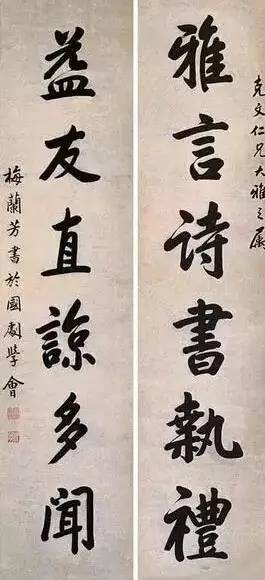 克文仁兄大雅之屬
雅言詩書執禮
益友直諒多聞
梅蘭芳書於國劇學會